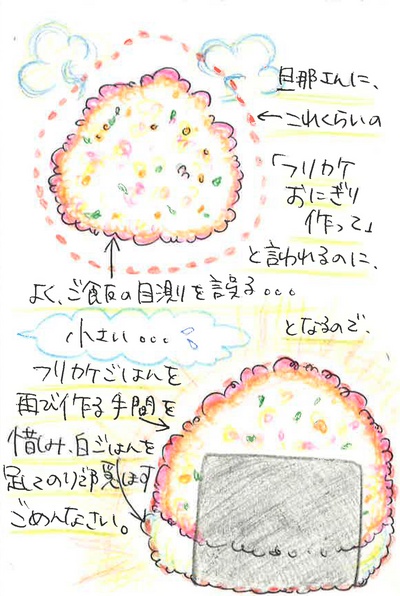 旦那さんに、
←これくらいの
「フリカケ
おにぎり
作って」
と言われるのに、
よく、ご飯の目測りを誤る。。。
小さい。。。
となるので、
フリカケごはんを
再び作る手間を
惜しみ、白ごはんを
足してのりで誤魔化す
ごめんなさい。